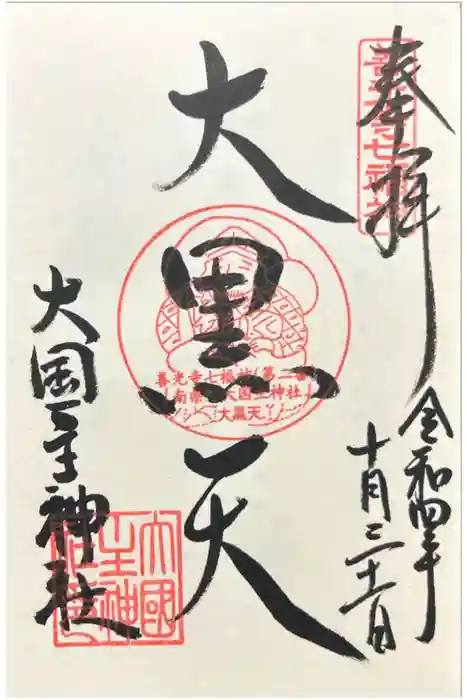 奉拝
善光寺七福神
令和四年
十月三十一日
大黒天
善光寺七福神(第二番)
大国主神社
大黒天
大国主神社
大國
主神